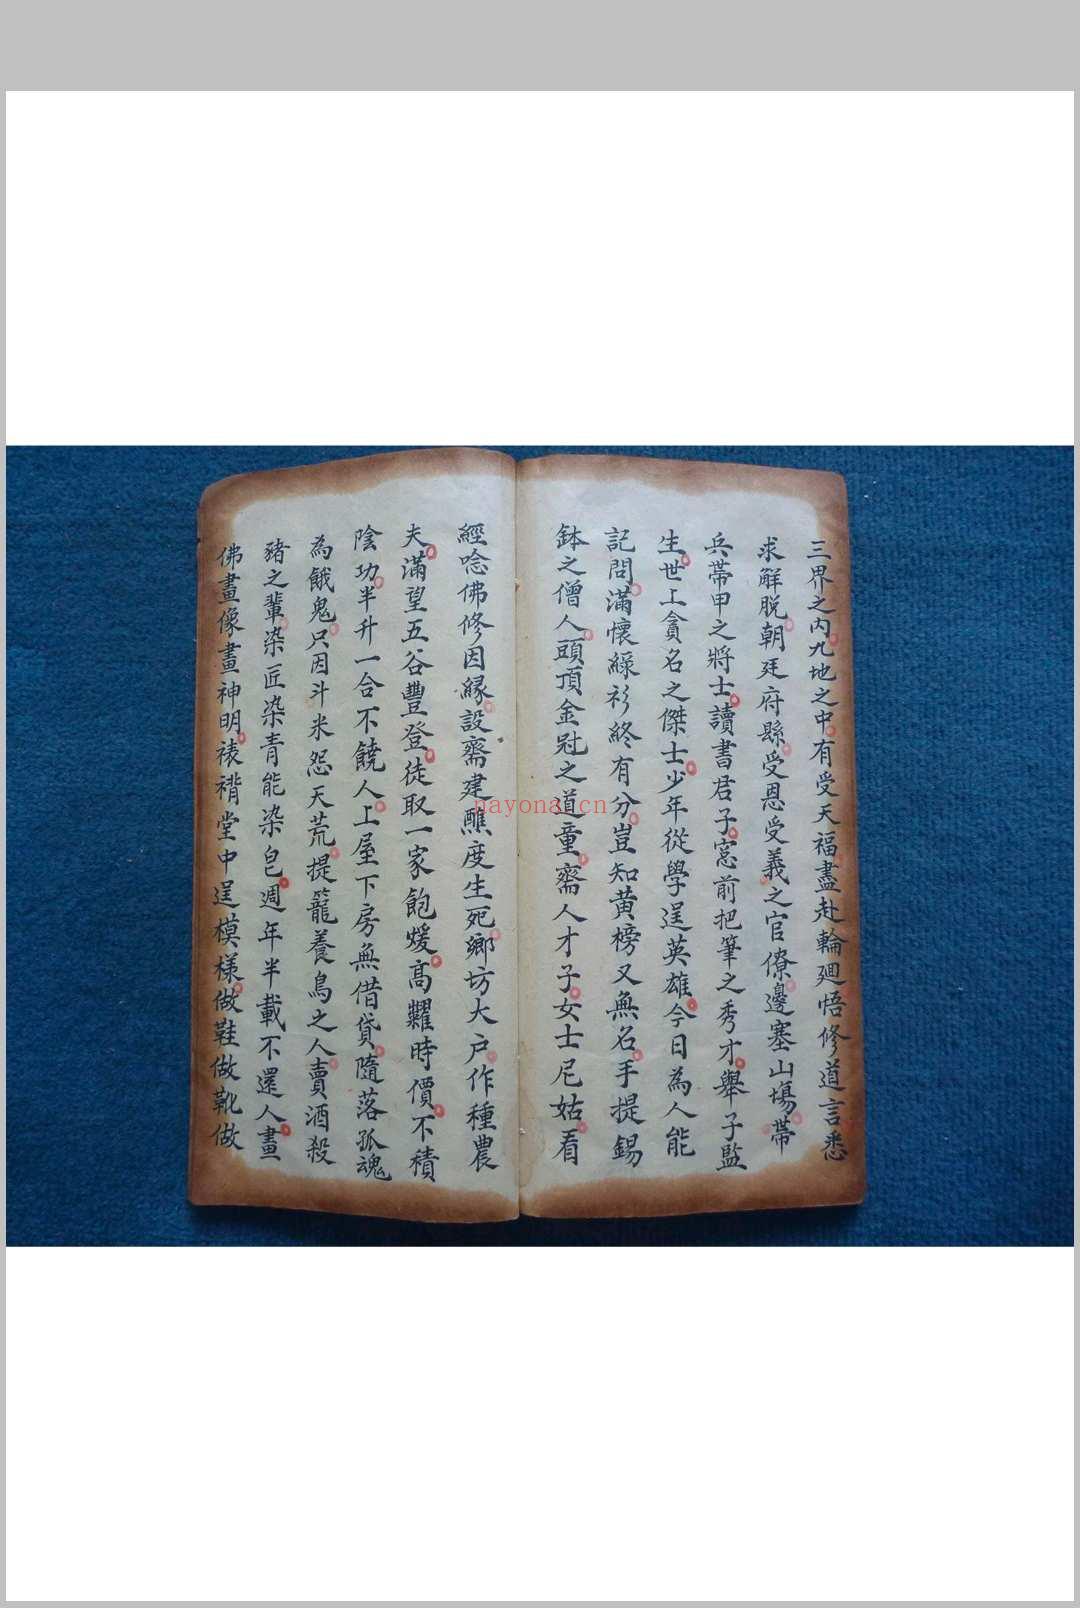 三界之内九地之中有受天福盡赴輪廻悟修道言悉
求解脱朝廷府縣受恩受義之官僚邊塞山塲帶
兵帶甲之將士讀書君子窓前把筆之秀才舉子監
生世上貪名之傑士少年從學逞英雄今日為人能
記問滿懷綠衫終有分豈知黄榜又無名手提錫
鉢之僧人頭頂金冠之道童齋人才子女士尼姑看
經唸佛修因緣設齋建醮度生死鄉坊大户作種農
夫滿望五谷豐登徒取一家飽煖高糶時價不積
陰功半升一合不饒人上屋下房無借貸隨落孤魂
為餓鬼只因斗米怨天荒提籠養鳥之人賣酒殺
豬之輩染匠染青能染皂週年半載不還人畫
佛畫像畫神明裱褙堂中逞模樣做鞋做靴做
nayona.cn